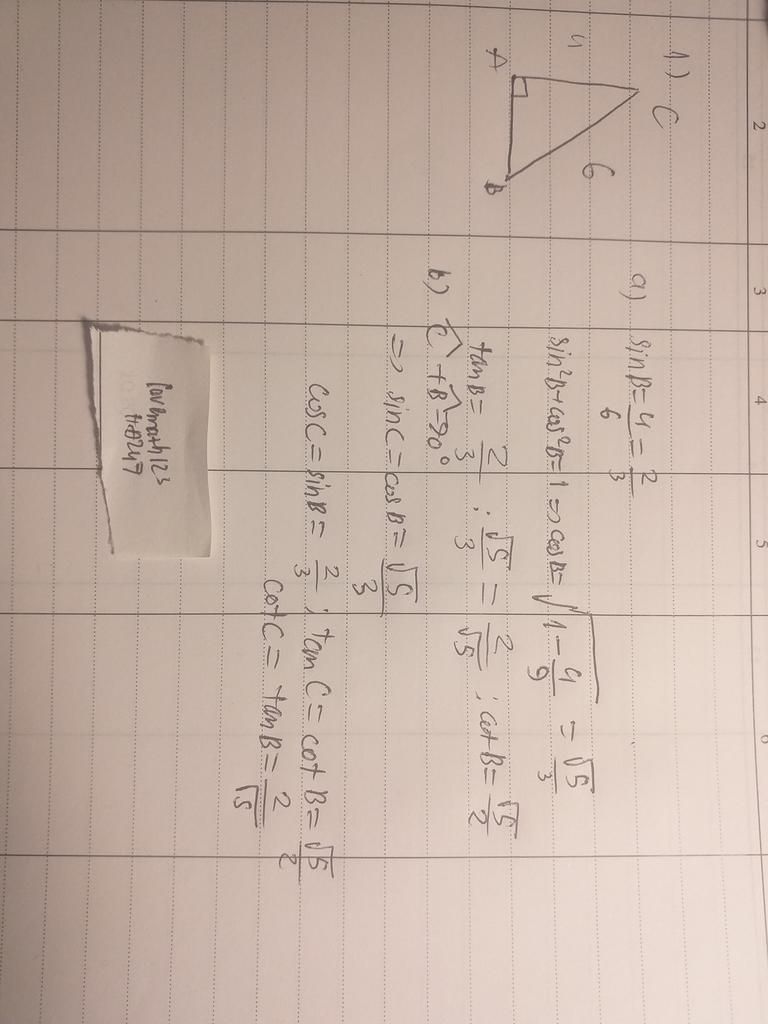 1.)
C
4
6
A
B
a) sinB = 4/6 = 2/3
sin²B + cos²B = 1 => cosB = √(1 - 4/9) = √5/3
tanB = 2/3 : √5/3 = 2/√5 ; cotB = √5/2
b) Ĉ + B̂ = 90°
=> sinC = cosB = √5/3
cosC = sinB = 2/3 ; tanC = cot B = √5/2
cotC = tanB = 2/√5
lovemath123
2
3
4
5
6